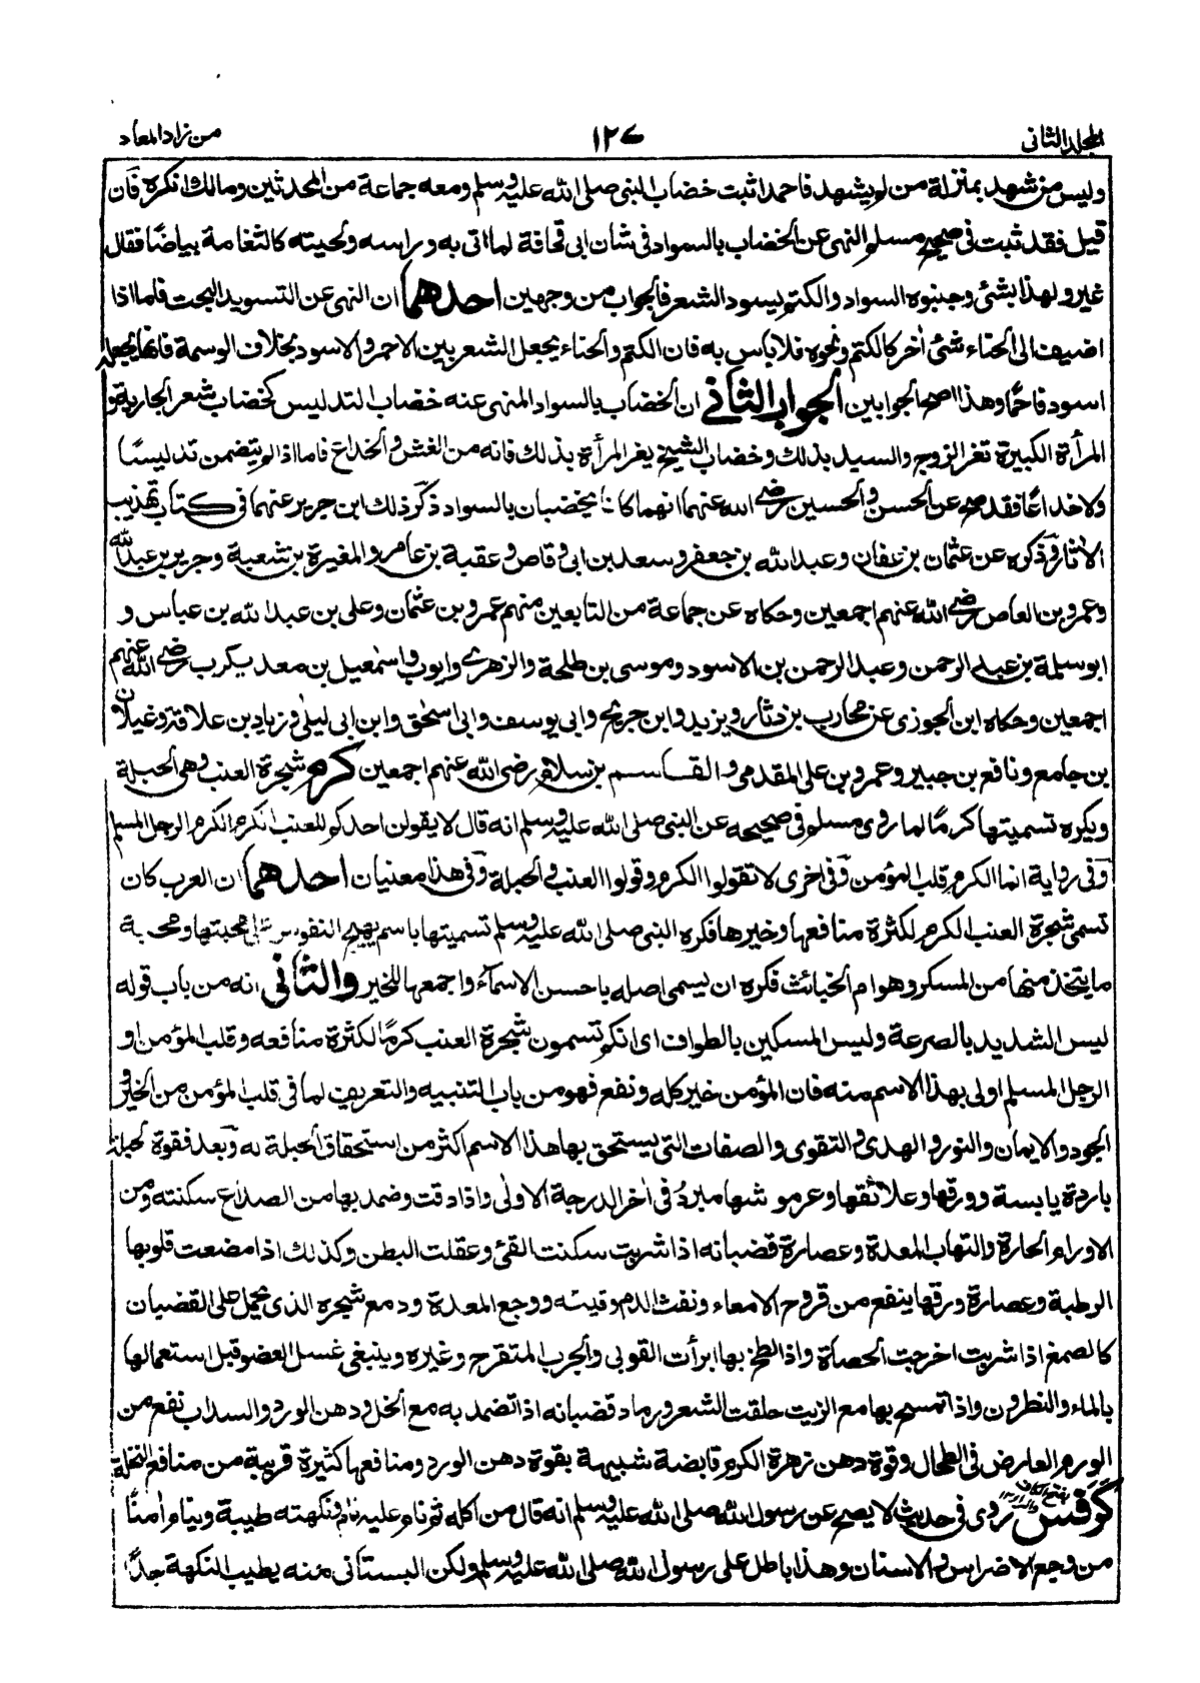 المجلد الثانى
١٢٧
من زاد المعاد
وليس من شهد بمنزلة من لم يشهد فاحمد اثبت خضاب النبى صلى الله عليه وسلم ومعه جماعة من المحدثين ومالك انكره فان
قيل فقد ثبت فى صحيح مسلم النهى عن الخضاب بالسواد فى شان ابى قحافة لما اتى به وراسه ولحيته كالثغامة بياضًا فقال
غيروا هذا بشئ وجنبوه السواد والكتم يسود الشعر فالجواب من وجهين احدهما ان النهى عن التسويد البحت فاما اذا
اضيف الى الحناء شئ اخر كالكتم ونحوه فلا باس به فان الكتم والحناء يجعل الشعر بين الاحمر والاسود بخلاف الوسمة فانها تجعله
اسود فاحمًا وهذا اصح الجوابين الجواب الثانى ان الخضاب بالسواد المنهى عنه خضاب التدليس كخضاب شعر الجارية و
المرأة الكبيرة تغر الزوج والسيد بذلك وخضاب الشيخ يغر المرأة بذلك فانه من الغش والخداع فاما اذا لم يتضمن تدليسًا
ولا خداعًا فقد صح عن الحسن والحسين رضى الله عنهما انهما كانا يخضبان بالسواد ذكر ذلك ابن جرير عنهما فى كتاب تهذيب
الاثار وذكره عن عثمان بن عفان وعبد الله بن جعفر وسعد بن ابى وقاص وعقبة بن عامر والمغيرة بن شعبة وجرير بن عبد الله
وعمرو بن العاص رضى الله عنهم اجمعين وحكاه عن جماعة من التابعين منهم عمرو بن عثمان وعلى بن عبد الله بن عباس و
ابو سلمة بن عبد الرحمن وعبد الرحمن بن الاسود وموسى بن طلحة والزهرى وايوب واسمعيل بن معد يكرب رضى الله عنهم
اجمعين وحكاه ابن الجوزى عن محارب بن دثار ويزيد وابن جريج وابى يوسف وابى اسحق وابن ابى ليلى وزياد بن علاقة وغيلان
بن جامع ونافع بن جبير وعمرو بن على المقدمى والقاسم بن سلام رضى الله عنهم اجمعين كرم شجرة العنب وهى الحبلة
ويكره تسميتها كرمًا لما روى مسلم فى صحيحه عن النبى صلى الله عليه وسلم انه قال لا يقولن احدكم للعنب الكرم الكرم الرجل المسلم
وفى رواية انما الكرم قلب المؤمن وفى اخرى لا تقولوا الكرم وقولوا العنب والحبلة وفى هذا معنيان احدهما ان العرب كان
تسمى شجرة العنب الكرم لكثرة منافعها وخيرها فكره النبى صلى الله عليه وسلم تسميتها باسم يهيج النفوس على محبتها ومحبة
ما يتخذ منها من المسكر وهو ام الخبائث فكره ان يسمى اصله باحسن الاسماء واجمعها للخير والثانى انه من باب قوله
ليس الشديد بالصرعة وليس المسكين بالطواف اى انكم تسمون شجرة العنب كرمًا لكثرة منافعه وقلب المؤمن او
الرجل المسلم اولى بهذا الاسم منه فان المؤمن خير كله ونفع فهو من باب التنبيه والتعريف لما فى قلب المؤمن من الخير و
الجود والايمان والنور والهدى والتقوى والصفات التى يستحق بها هذا الاسم اكثر من استحقاق الحبلة له وبعد فقوة الحبلة
باردة يابسة وورقها وعلائقها وعرموشها مبردٌ فى اخر الدرجة الاولى واذا دقت وضمد بها من الصداع سكنته ومن
الاورام الحارة والتهاب المعدة وعصارة قضبانه اذا شربت سكنت القئ وعقلت البطن وكذلك اذا مضغت قلوبها
الرطبة وعصارة ورقها ينفع من قروح الامعاء ونفث الدم وقيئه ووجع المعدة ودمع شجره الذى يحمل على القضبان
كالصمغ اذا شربت اخرجت الحصاة واذا لطخ بها ابرأت القوبى والجرب المتقرح وغيره وينبغى غسل العضو قبل استعمالها
بالماء والنطرون واذا تمسح بها مع الزيت حلقت الشعر ورماد قضبانه اذا تضمد به مع الخل ودهن الورد والسداب نفع من
الورم العارض فى الطحال وقوة دهن زهرة الكرم قابضة شبيهة بقوة دهن الورد ومنافعها كثيرة قريبة من منافع النخلة
كَرَفْس روى فى حديث لا يصح عن رسول الله صلى الله عليه وسلم انه قال من اكله ثم نام عليه نام ونكهته طيبة وينام امنًا
من وجع الاضراس والاسنان وهذا باطل على رسول الله صلى الله عليه وسلم ولكن البستانى منه يطيب النكهة جدًّا